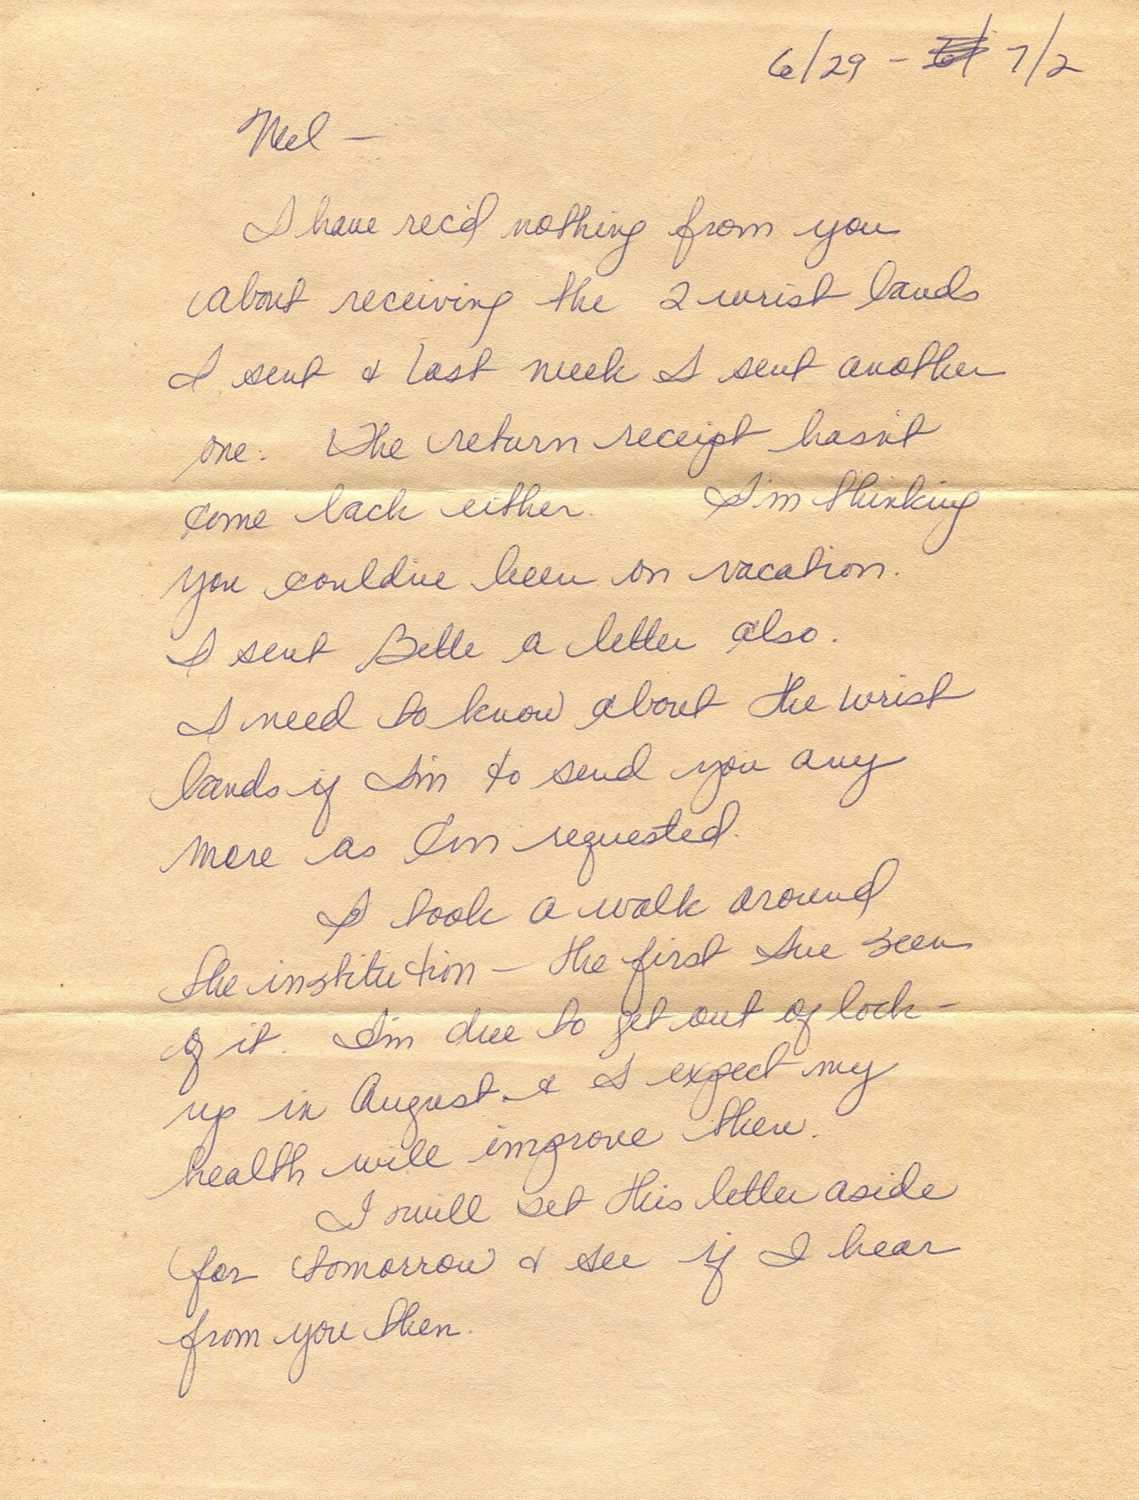 6/29 - 7/2
Neel —
I have rec'd nothing from you
about receiving the 2 wrist bands
I sent & last week I sent another
one. The return receipt hasn't
come back either. I'm thinking
you could've been on vacation.
I sent Belle a letter also.
I need to know about the wrist
bands if I'm to send you any
more as I'm requested.
I took a walk around
the institution — the first I've seen
of it. I'm due to get out of lock-
up in August & I expect my
health will improve then.
I will set this letter aside
for tomorrow & see if I hear
from you then.